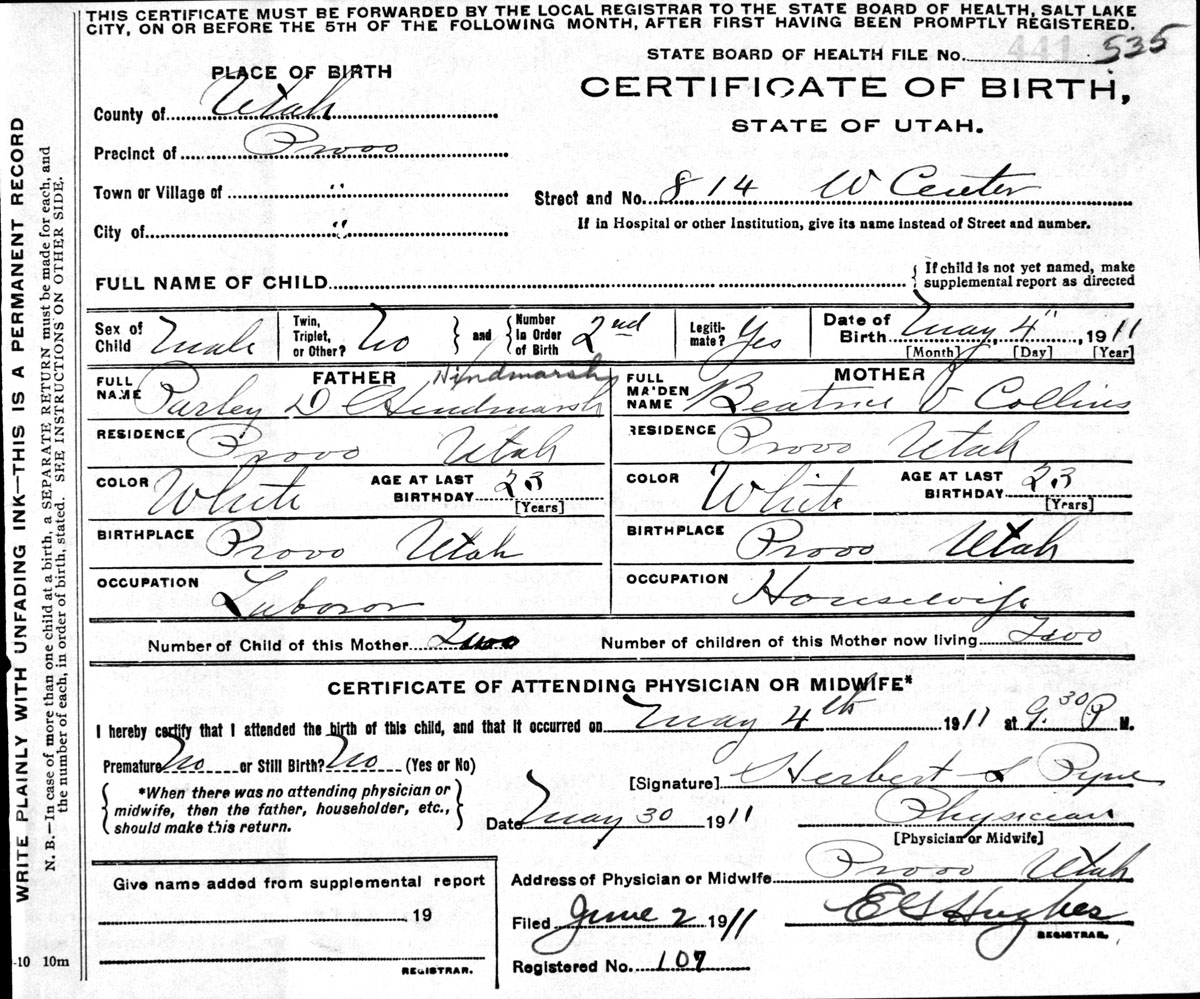 THIS CERTIFICATE MUST BE FORWARDED BY THE LOCAL REGISTRAR TO THE STATE BOARD OF HEALTH, SALT LAKE
CITY, ON OR BEFORE THE 5TH OF THE FOLLOWING MONTH, AFTER FIRST HAVING BEEN PROMPTLY REGISTERED.
STATE BOARD OF HEALTH FILE No. 441 535
PLACE OF BIRTH
CERTIFICATE OF BIRTH,
STATE OF UTAH.
County of Utah
Precinct of Provo
Town or Village of "
Street and No. 814 W Center
City of "
If in Hospital or other Institution, give its name instead of Street and number.
FULL NAME OF CHILD
If child is not yet named, make
supplemental report as directed
Sex of Child Male
Twin, Triplet, or Other? No
and
Number In Order of Birth 2nd
Legiti-mate? Yes
Date of Birth May 4", 1911
[Month] [Day] [Year]
FATHER
Hindmarsh
FULL NAME Purley D Hindmarsh
MOTHER
FULL MAIDEN NAME Beatrice V Collins
RESIDENCE Provo Utah
RESIDENCE Provo Utah
COLOR White
AGE AT LAST BIRTHDAY 23
[Years]
COLOR White
AGE AT LAST BIRTHDAY 23
[Years]
BIRTHPLACE Provo Utah
BIRTHPLACE Provo Utah
OCCUPATION Laboror
OCCUPATION Housewife
Number of Child of this Mother Two
Number of children of this Mother now living Two
CERTIFICATE OF ATTENDING PHYSICIAN OR MIDWIFE*
I hereby certify that I attended the birth of this child, and that it occurred on May 4th 1911 at 9.30 P M.
Premature No or Still Birth? No (Yes or No)
[Signature] Herbert S Pyne
*When there was no attending physician or
midwife, then the father, householder, etc.,
should make this return.
Date May 30 1911
Physician
[Physician or Midwife]
Give name added from supplemental report
19
REGISTRAR.
Address of Physician or Midwife Provo Utah
Filed June 2 1911
E G Hughes
REGISTRAR.
Registered No. 107
-10 10m
WRITE PLAINLY WITH UNFADING INK—THIS IS A PERMANENT RECORD
N. B.—In case of more than one child at a birth, a SEPARATE RETURN must be made for each, and
the number of each, in order of birth, stated. SEE INSTRUCTIONS ON OTHER SIDE.